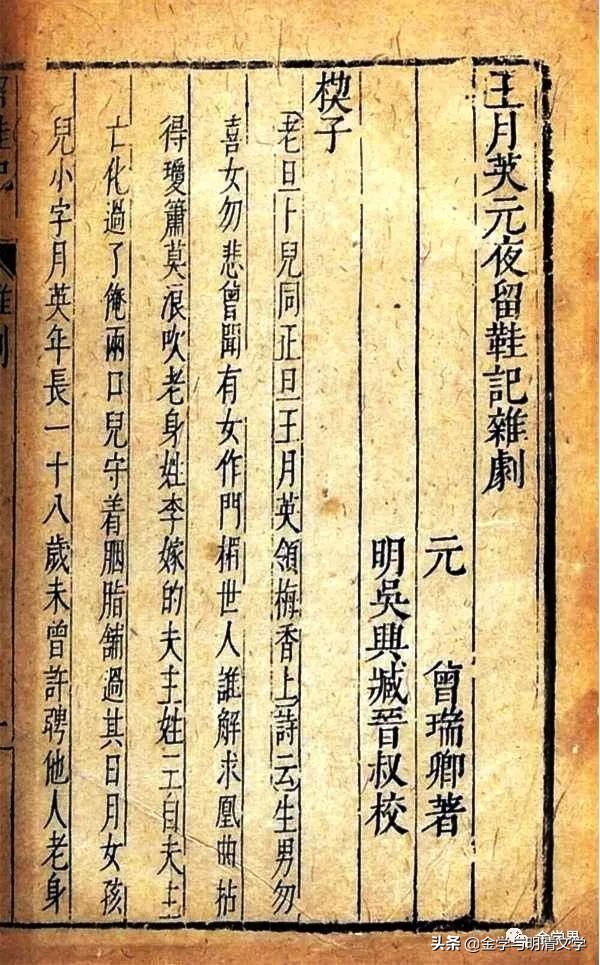 王月英元夜留鞋記雜劇
元 曾瑞卿著
明吳興臧晉叔校
楔子
老旦卜兒同正旦王月英領梅香上詩云生男勿
喜女勿悲曾聞有女作門楣世人誰解求凰曲拈
得瓊簫莫浪吹老身姓李嫁的夫主姓王自夫主
亡化過了俺兩口兒守着胭脂舖過其日月女孩
兒小字月英年長一十八歲未曾許聘他人老身
金学界
头条 @金学与明清文学